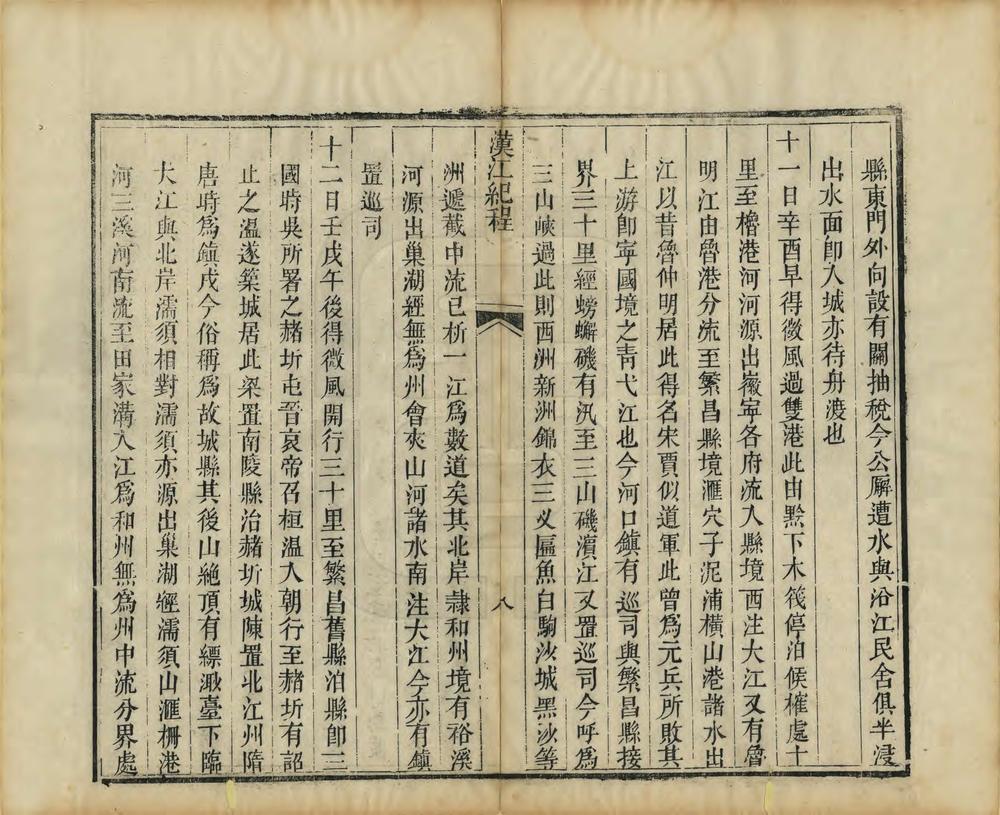 縣東門外向設有關抽稅今公廨遭水與沿江民舍俱半浸
出水面卽入城亦待舟渡也
十一日辛酉早得微風過雙港此由黟下木筏停泊候榷處十
里至櫓港河河源出徽寜各府流入縣境西注大江又有魯
明江由魯港分流至繁昌縣境滙穴子泥浦橫山港諸水出
江以昔魯仲明居此得名宋賈似道軍此曾爲元兵所敗其
上游卽寧國境之靑弋江也今河口鎭有巡司與繁昌縣接
界三十里經螃蠏磯有汛至三山磯濱江又置巡司今呼爲
三山峽過此則西洲新洲錦衣三义匾魚白駒沙城黑沙等
漢江紀程
八
洲遞截中流已析一江爲數道矣其北岸隷和州境有裕溪
河源出巢湖經無爲州會夾山河諸水南注大江今亦有鎭
置巡司
十二日壬戌午後得微風開行三十里至繁昌舊縣泊縣卽三
國時吳所署之赭圻屯晉哀帝召桓溫入朝行至赭圻有詔
止之溫遂築城居此梁置南陵縣治赭圻城陳置北江州隋
唐時爲鎭戍今俗稱爲故城縣其後山絶頂有縹渺臺下臨
大江與北岸濡須相對濡須亦源出巢湖經濡須山滙柵港
河三溪河南流至田家溝入江爲和州無爲州中流分界處